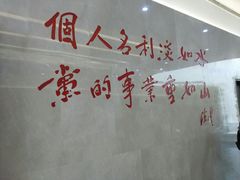 個人名利淡如水
黨的事業重如山